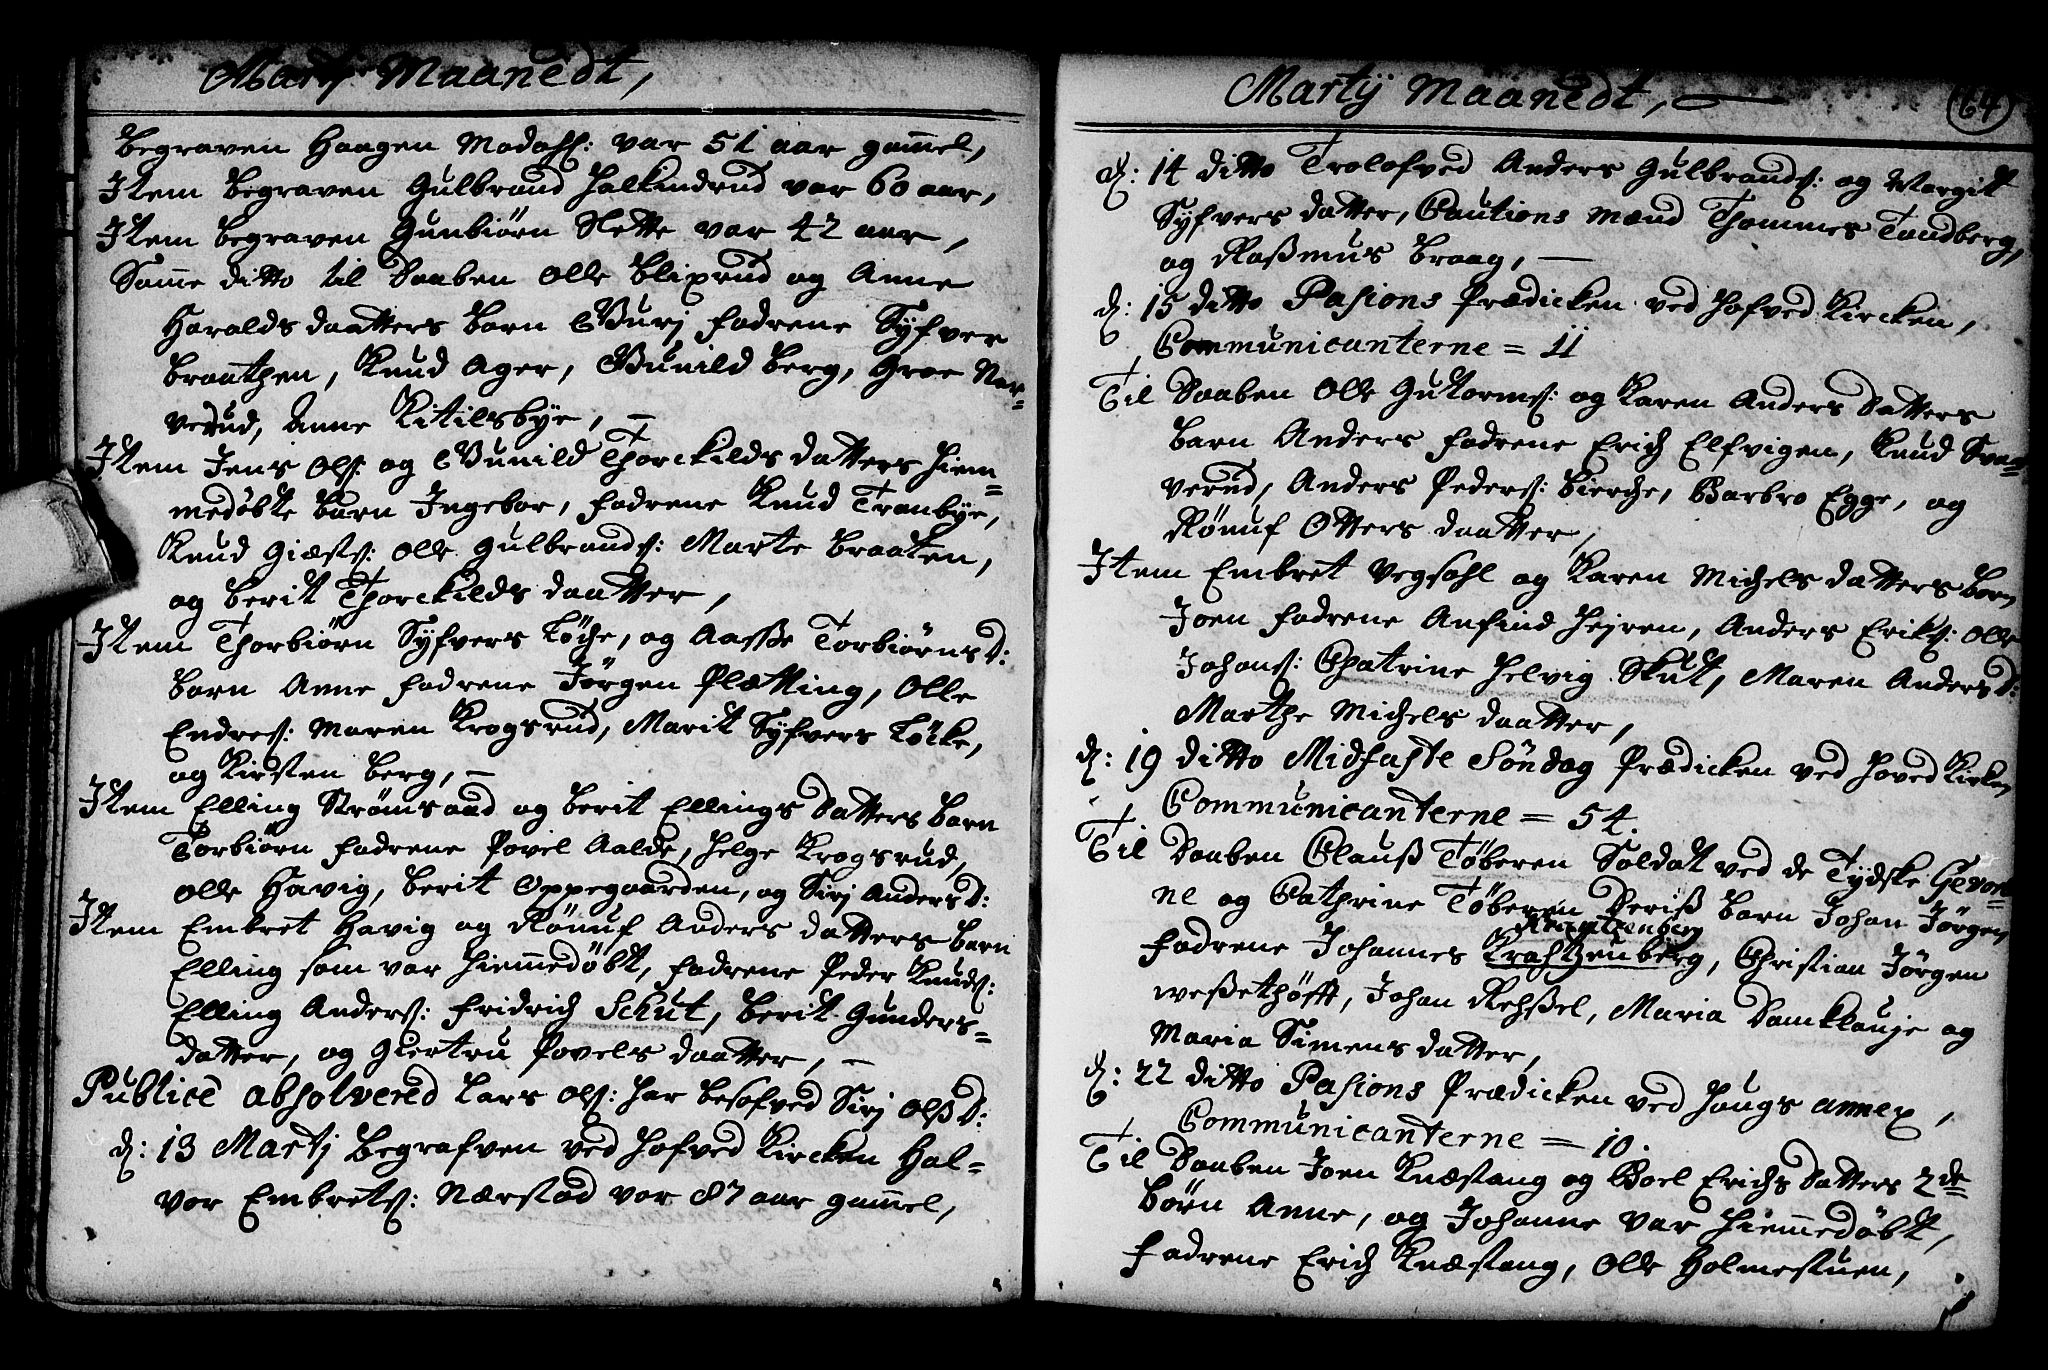 Martij Maanedt,
Begraven Haagen Modahl: var 51 aar gam̄el,
Item begraven Gulbrand Halkindrud var 60 aar,
Item begraven Gunbiörn Slette var 42 aar,
Sam̄e ditto til Daaben Olle Blixrud og Anne
Haralds daatters barn Gurj fadrene Syfver
Braathen, Knud Ager, Gunild Berg, Groe Nar=
verud, Anne Kitilsbye, —
Item Jens Ols: og Gunild Thorckilds datters hiem=
medøbte barn Ingebor, fadrene Knud Tranbye,
Knud Giæsts: Olle Gulbrands: Marte Braaten,
og Berit Thorckilds daatter,
Item Thorbiörn Syfvers Löche, og Aasse Torbiörns D:
barn Anne fadrene Jörgen Plætting, Olle
Endres: Maren Krogsrud, Marit Syfvers Löcke,
og Kirsten Berg, —
Item Elling Strömsaad og Berit Ellings Datters barn
Torbiörn fadrene Povel Aalde, Helge Krogsrud,
Olle Havig, Berit Oppegaarden, og Sirj Anders D:
Item Embret Havig og Rönuf Anders datters barn
Elling som var hiem̄edöbt, fadrene Peder Knuds:
Elling Anders: Fridrich Schut, Berit Gunders=
datter, og Giertru Povels daatter, —
Publice absolvered Lars Ols: har besofved Sirj Olss D:
d: 13 Martj Begrafven ved Hofved Kircken Hal=
vor Embrets: Nærstad var 87 aar gam̄el,
Martij Maanedt, —
64
d: 14 ditto Trolofved Anders Gulbrands: og Margit
Syfvers datter, Cautions mænd Thommes Tandberg,
og Rasmus Braag, —
d: 15 ditto Pasions Prædicken ved Hofved Kircken,
Communicanterne = 11
Til Daaben Olle Gutorms: og Karen Anders Datters
barn Anders fadrene Erich Elfvigen, Knud Svar=
verud, Anders Peders: Bierche, Barbro Egge, og
Rönuf Otters daatter,
Item Embret Vegsahl og Karen Michels datters barn
Joen fadrene Anfind Hejren, Anders Eriks: Olle
Johans: Chatrine Helvig Skut, Maren Anders D:
Marthe Michels daatter,
d: 19 ditto Midfaste Söndag Prædicken ved Hoved Kirken
Communicanterne = 54.
Til Daaben Clauss Töberen Soldat ved de Tydske Gevor=
ne og Cathrine Töberen Deriss barn Johan Jörgen
Krahtzenberg
fadrene Johannes Krahtzenberg, Christian Jörgen
Wessethöfft, Johan Rehssel, Maria Damklauje og
Maria Simens datter,
d: 22 ditto Pasions Prædicken ved Haugs annex,
Communicanterne = 10.
Til Daaben Joen Knæstang og Boel Erichs Datters 2de
börn Anne, og Johanne var hiem̄edöbt,
fadrene Erich Knæstang, Olle Holmestuen,